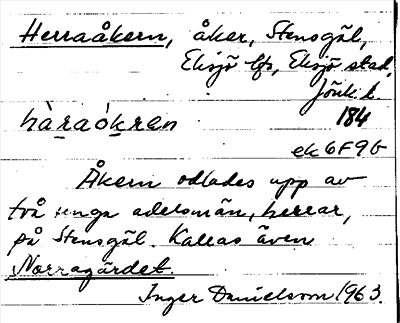 Herraåkern, åker, Stensgäl,
Eksjö lfs, Eksjö stad,
Jönk. l.
184
hàraókren
ek 6F9b
Åkern odlades upp av
två unga adelsmän, herrar,
på Stensgäl. Kallas även
Norragärdet.
Inger Danielsson 1963.